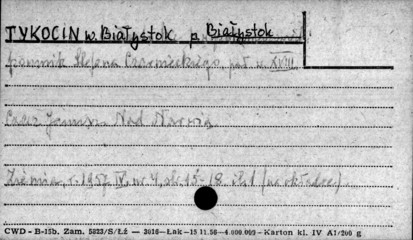 TYKOCIN w. Białystok p. Białystok
pomnik Stefana Czarnieckiego poł. w. XVIII
Nad Narwią
Ziemia, r. 1957 IV. nr 4 str. 15-18 il. 1 (na okładce)
CWD - B-15b. Zam. 5823/S/Łż — 3016—Łak—15 11.56—4.000.000—Karton kl. IV A1/200 g